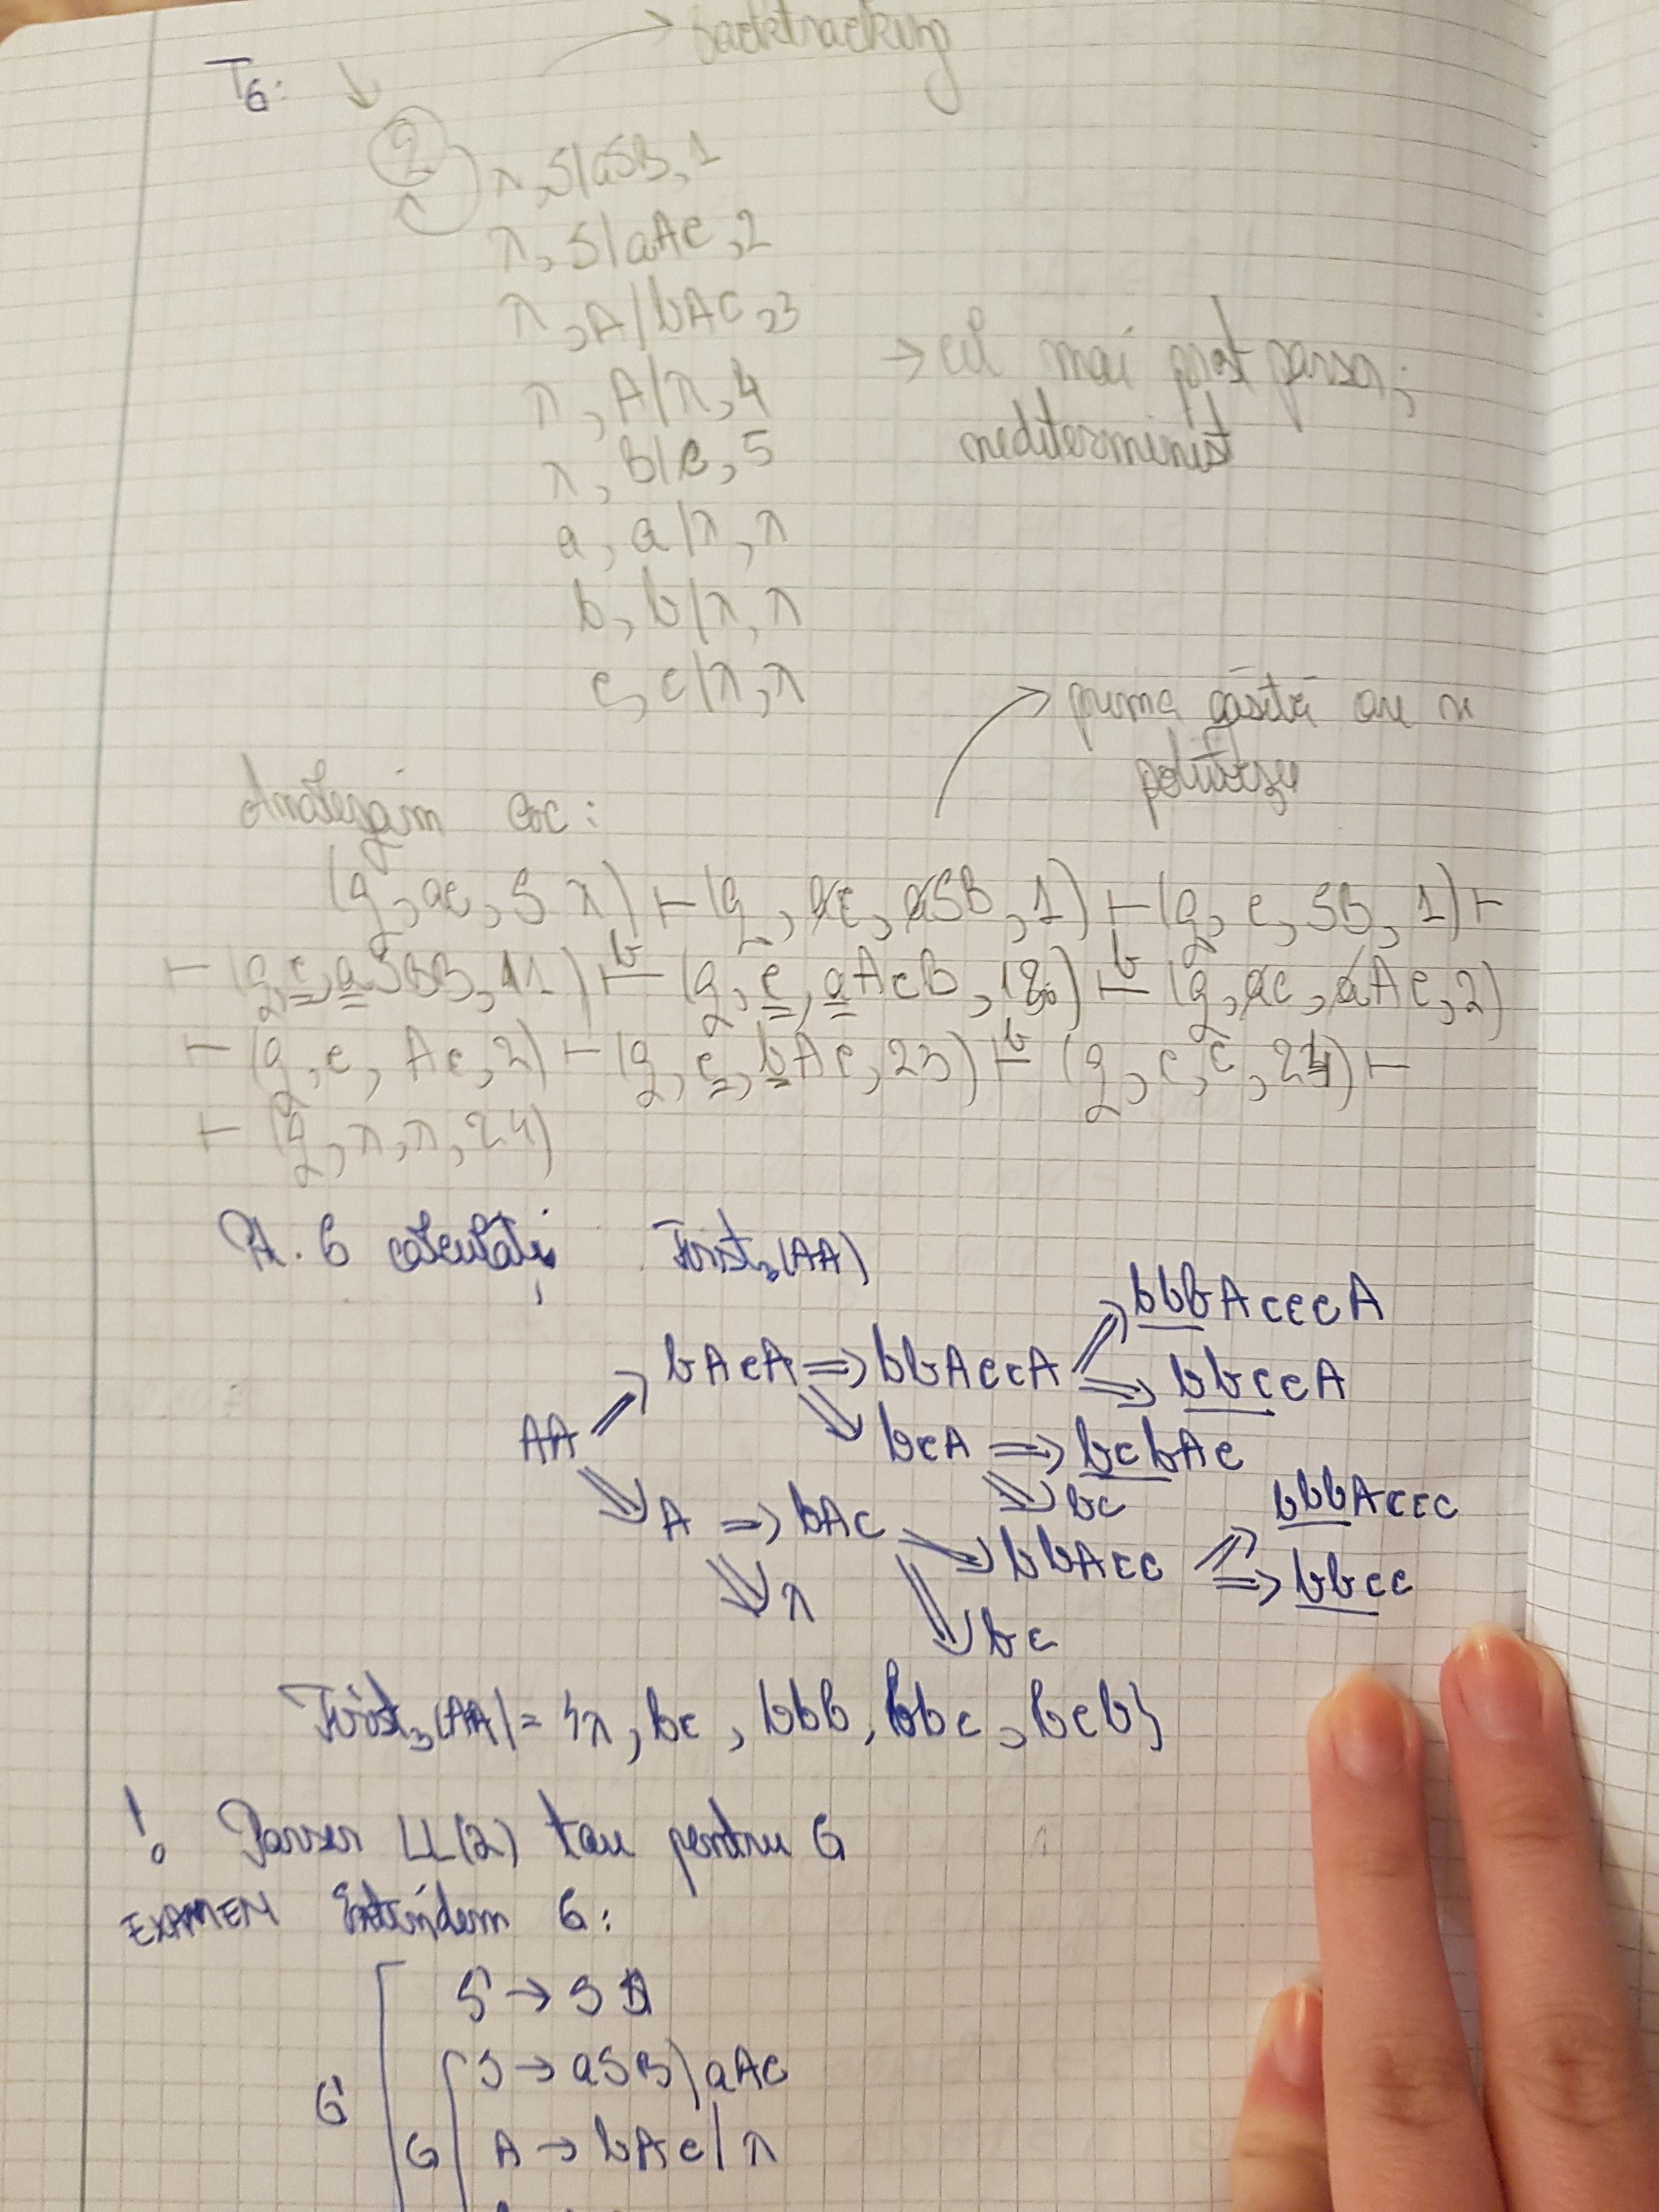 → backtracking
T6: ↓
2
λ, S/aSB, 1
λ, S/aAc, 2
λ, A/bAc, 3
λ, A/λ, 4
→ cel mai prost parser;
nedeterminist
λ, B/c, 5
a, a/λ, λ
b, b/λ, λ
c, c/λ, λ
→ prima găsită are
Analizăm ac:
(q, ac, S, λ) ⊢ (q, ac, aSB, 1) ⊢ (q, c, SB, 1) ⊢
⊢ (q, c, aSBB, 11) ⊢b (q, c, aAcB, 12) ⊢b (q, ac, aAc, 2)
⊢ (q, c, Ac, 2) ⊢ (q, c, bAc, 23) ⊢b (q, c, c, 24) ⊢
⊢ (q, λ, λ, 24)
Pt. G calculați First₃(AA)
bbbAcccA
bAcA ⇒ bbAccA ⇒ bbccA
AA
bcA ⇒ bcbAc
bc
bbbAccc
A ⇒ bAc
bbAcc ⇒ bbcc
λ
bc
First₃(AA) = {λ, bc, bbb, bbc, bcb}
! Parser LL(2) tare pentru G
EXAMEN Extindem G:
S' → S
S → aSB | aAc
G'
G
A → bAc | λ